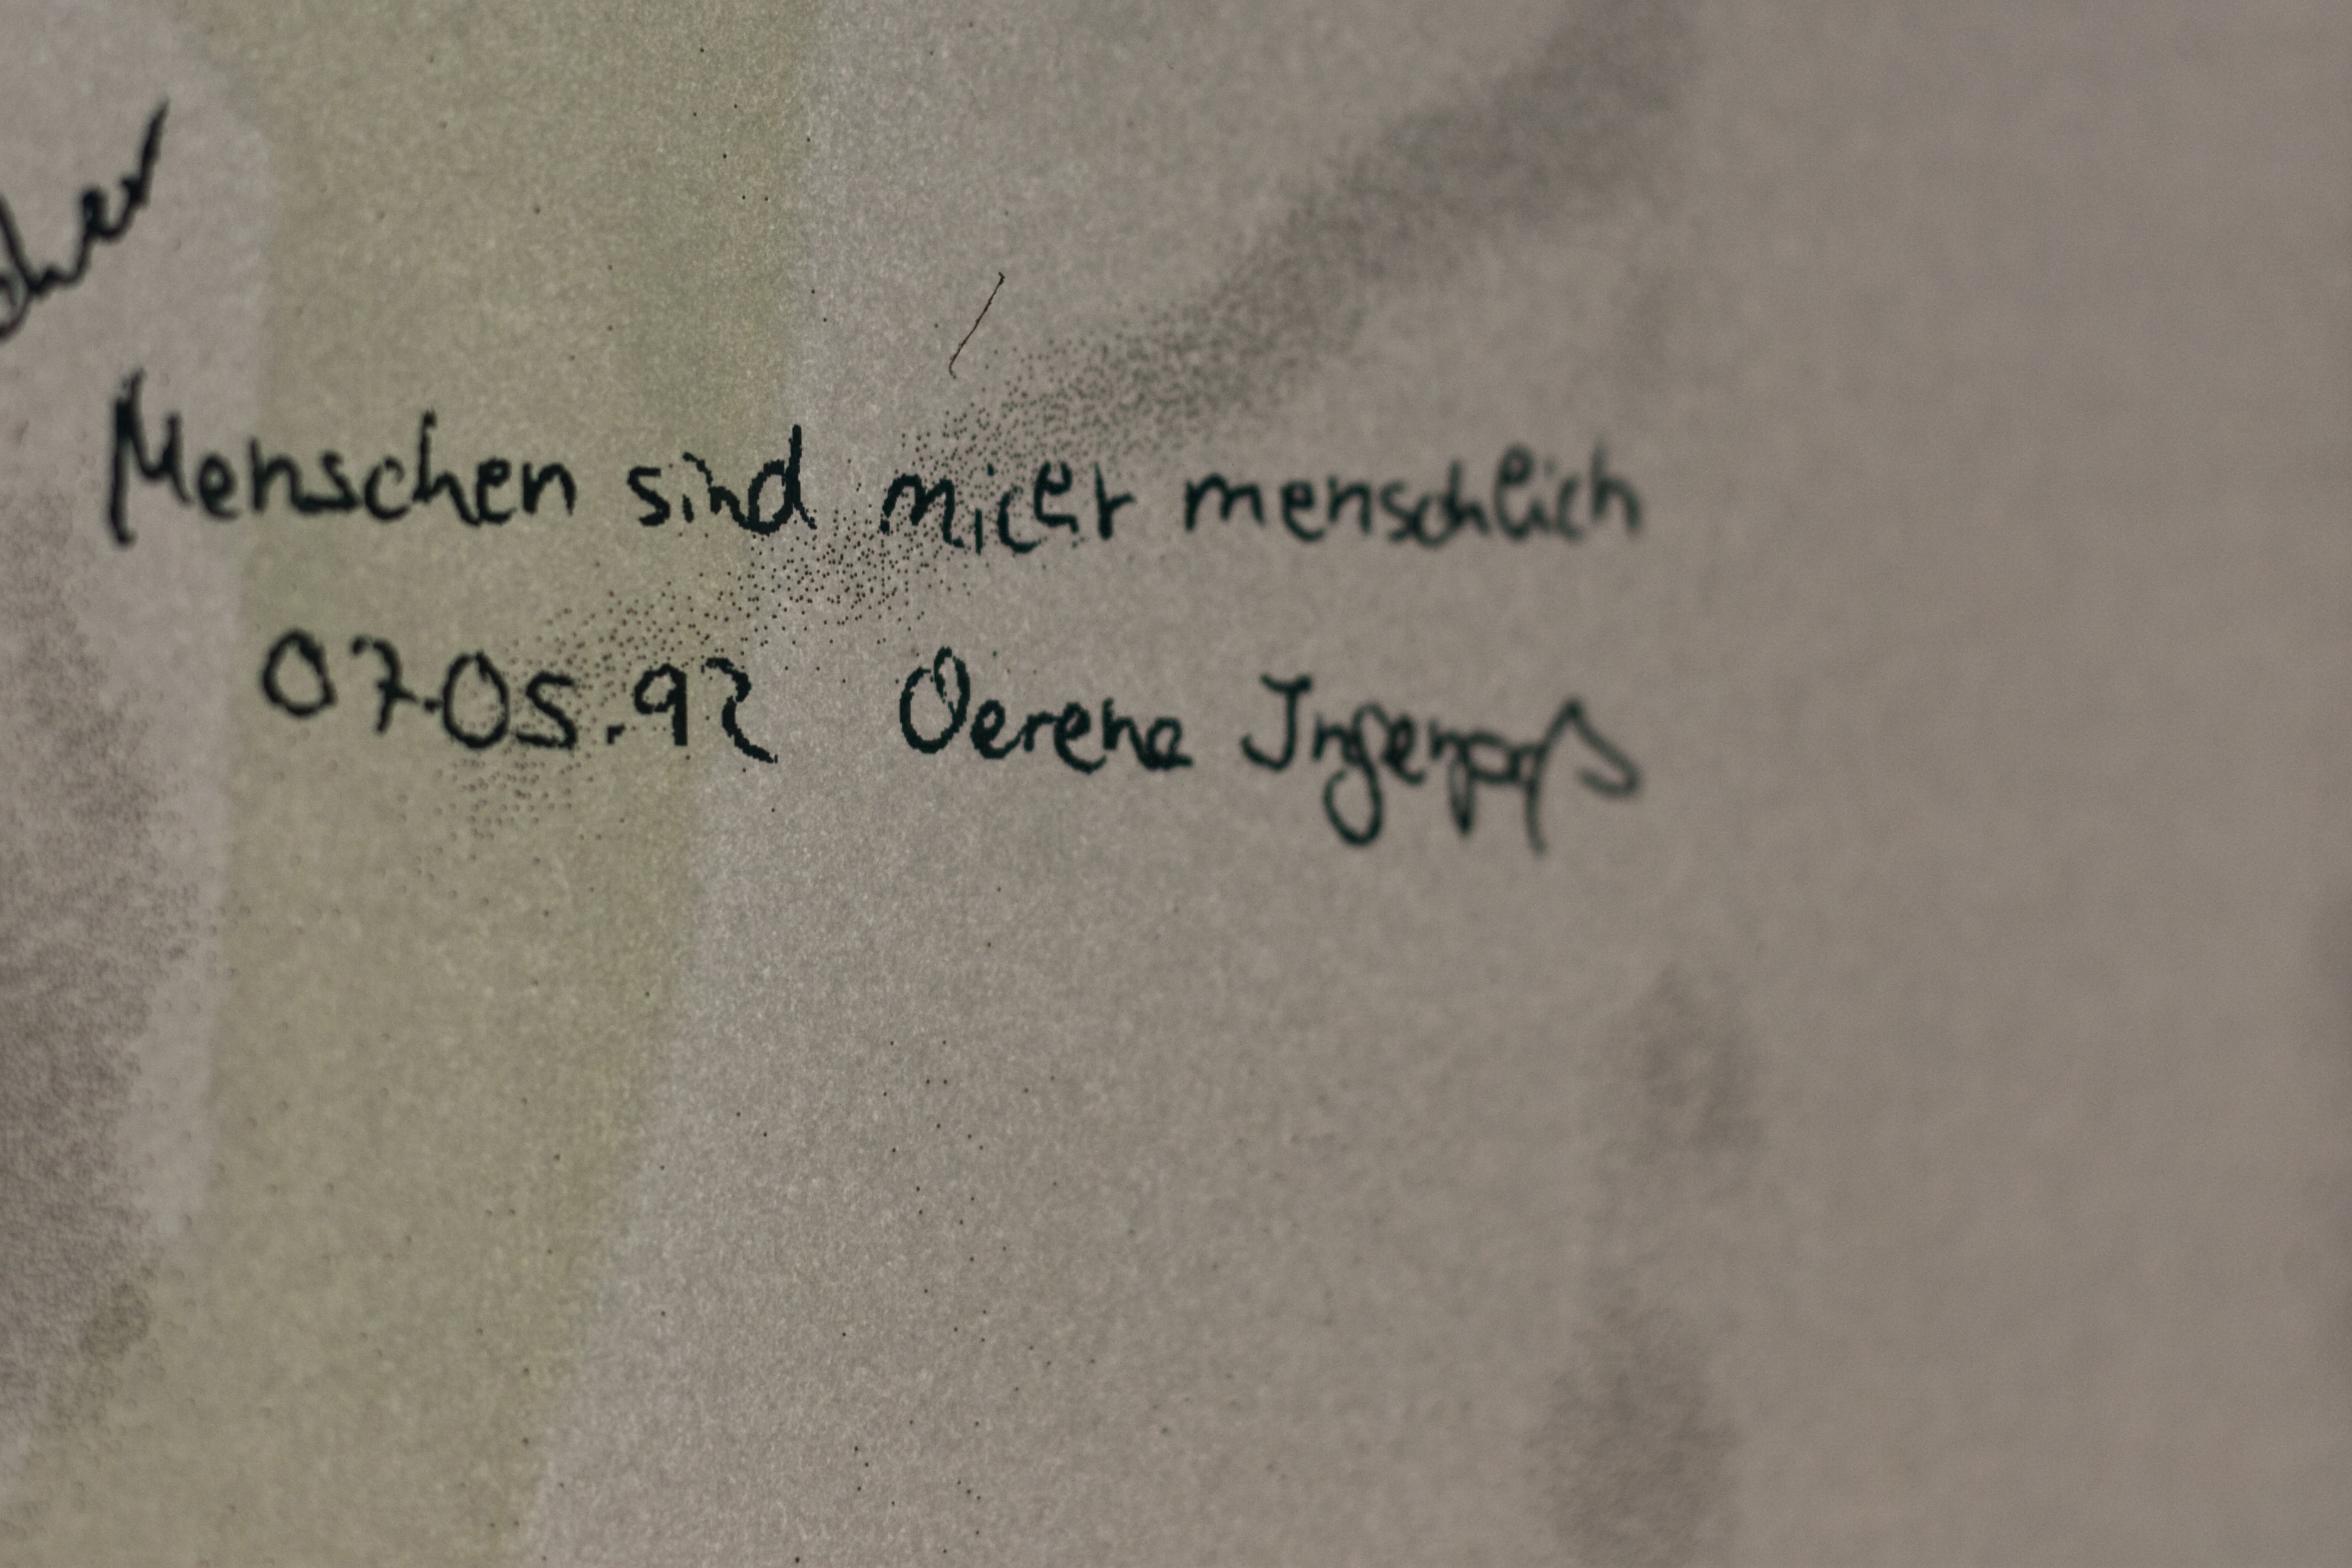 cher
Menschen sind nicht menschlich
07.05.92 Verena